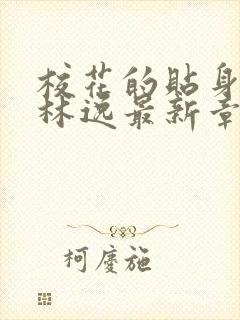 校花的贴身
林逸最新章
柯慶施